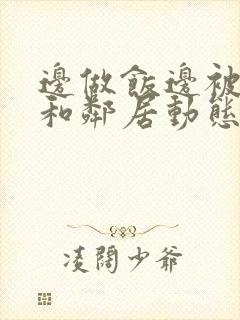 邊做飯邊被
和鄰居動態
凌闊少爺